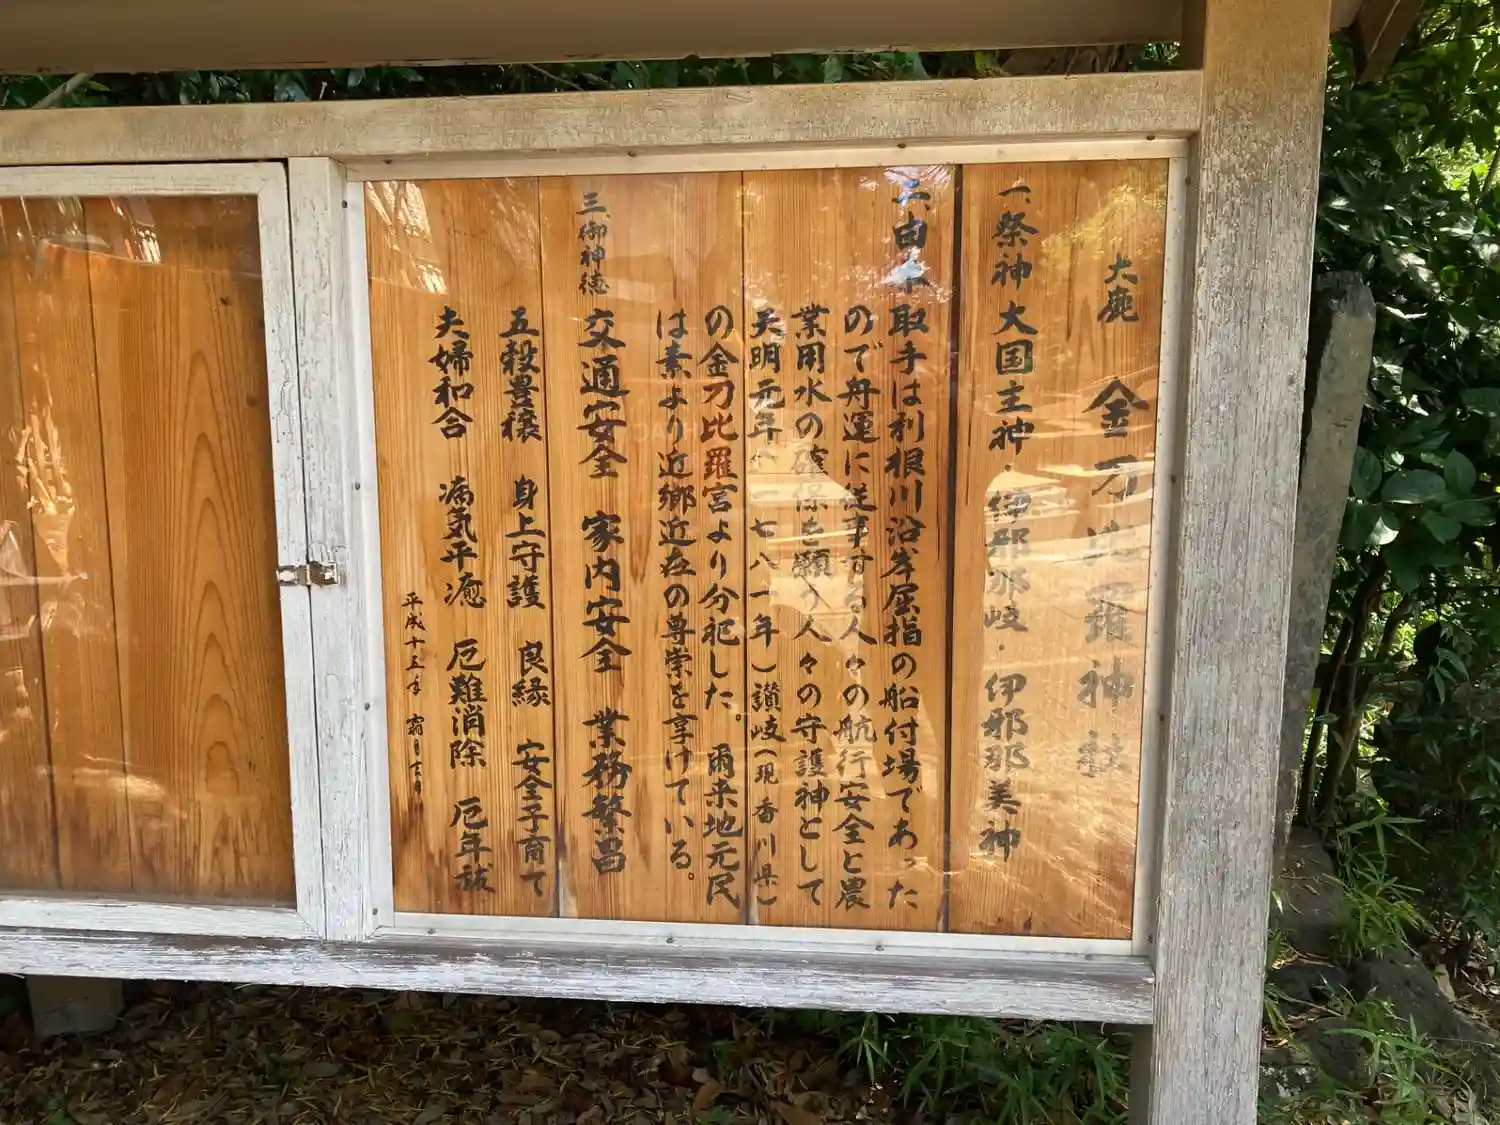 大鹿 金刀比羅神社
一、祭神 大国主神・伊邪那岐・伊邪那美神
二、由来 取手は利根川沿岸屈指の船付場であった
ので舟運に従事する人々の航行安全と農
業用水の確保を願う人々の守護神として
天明元年(一七八一年)讃岐(現香川県)
の金刀比羅宮より分祀した。爾来地元民
は素より近郷近在の尊崇を享けている。
三、御神徳 交通安全 家内安全 業務繁昌
五穀豊穣 身上守護 良縁 安全子育て
夫婦和合 病気平癒 厄難消除 厄年祓
平成十五年 霜月吉日